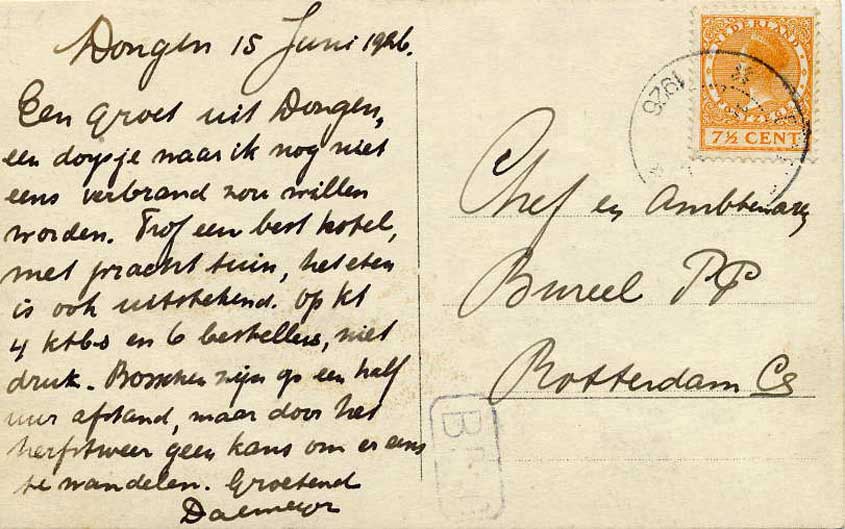 Dongen 15 Juni 1926.
Een groet uit Dongen,
een dorpje waar ik nog niet
eens verbrand zou willen
worden. Trof een best hotel,
met pracht tuin, het eten
is ook uitstekend. Op kt
4 ktbs en 6 bestellers, niet
druk. Bosschen zijn op een half
uur afstand, maar door het
herfstweer geen kans om er eens
te wandelen. Groetend
NEDERLAND
7½ CENT
1926
Chef en Ambtenaren
Bureel PP
Rotterdam Cs